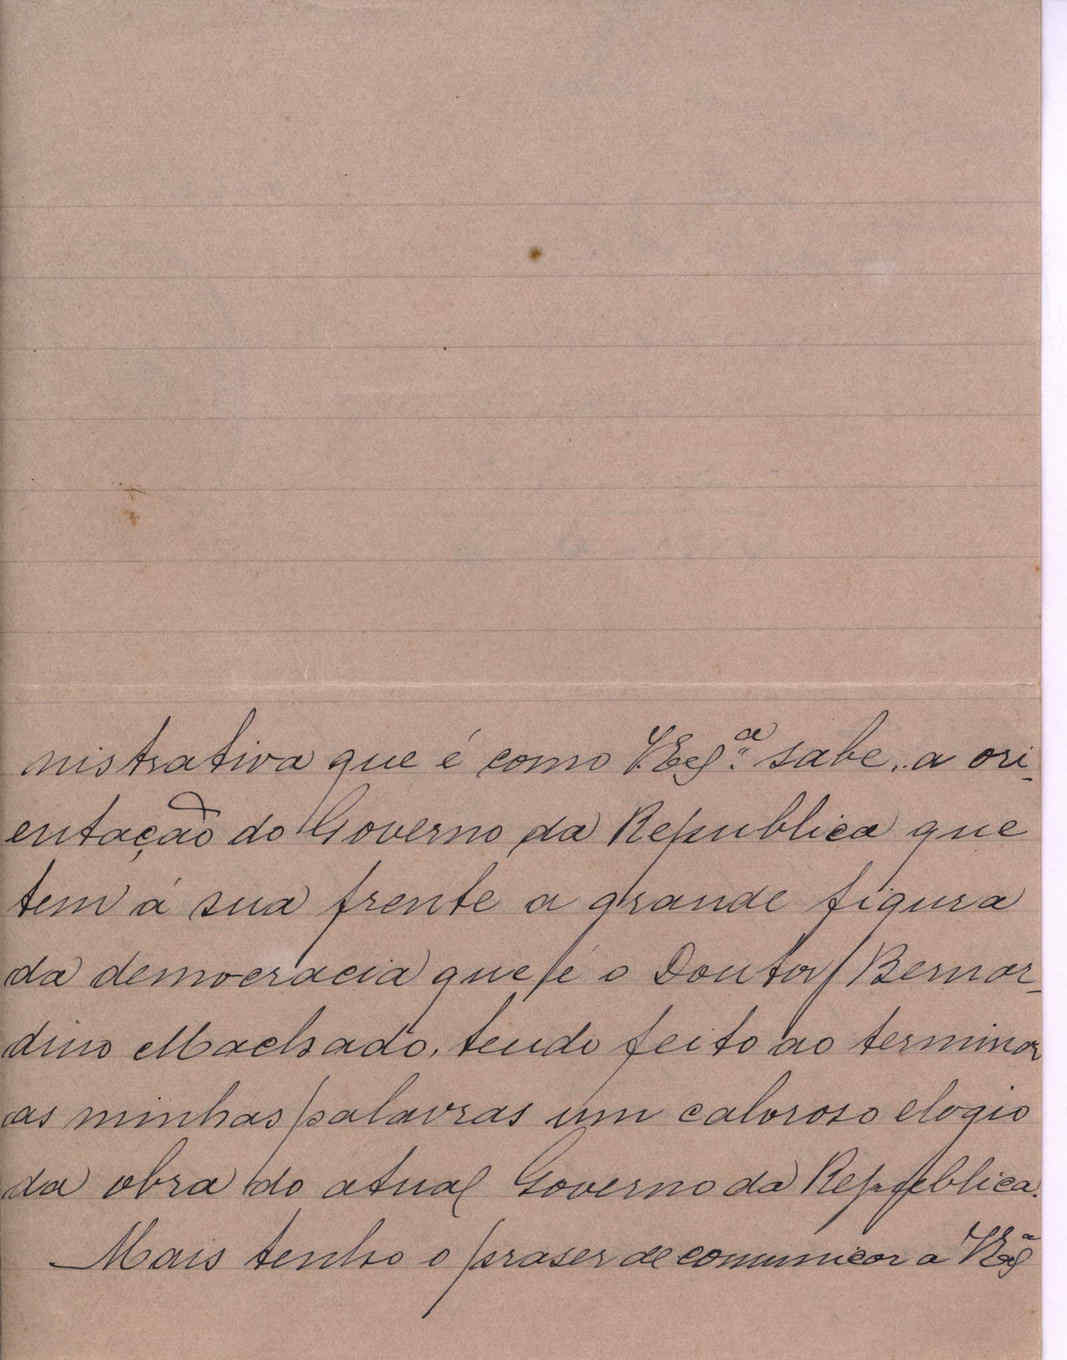 nistrativa que é como V.Exª. sabe, a ori-
entação do Governo da Republica que
tem á sua frente a grande figura
da democracia que é o Doutor Bernar-
dino Machado, tendo feito ao terminar
as minhas palavras um caloroso elogio
da obra do atual Governo da Republica.
Mais tenho o praser de comunicar a VExª